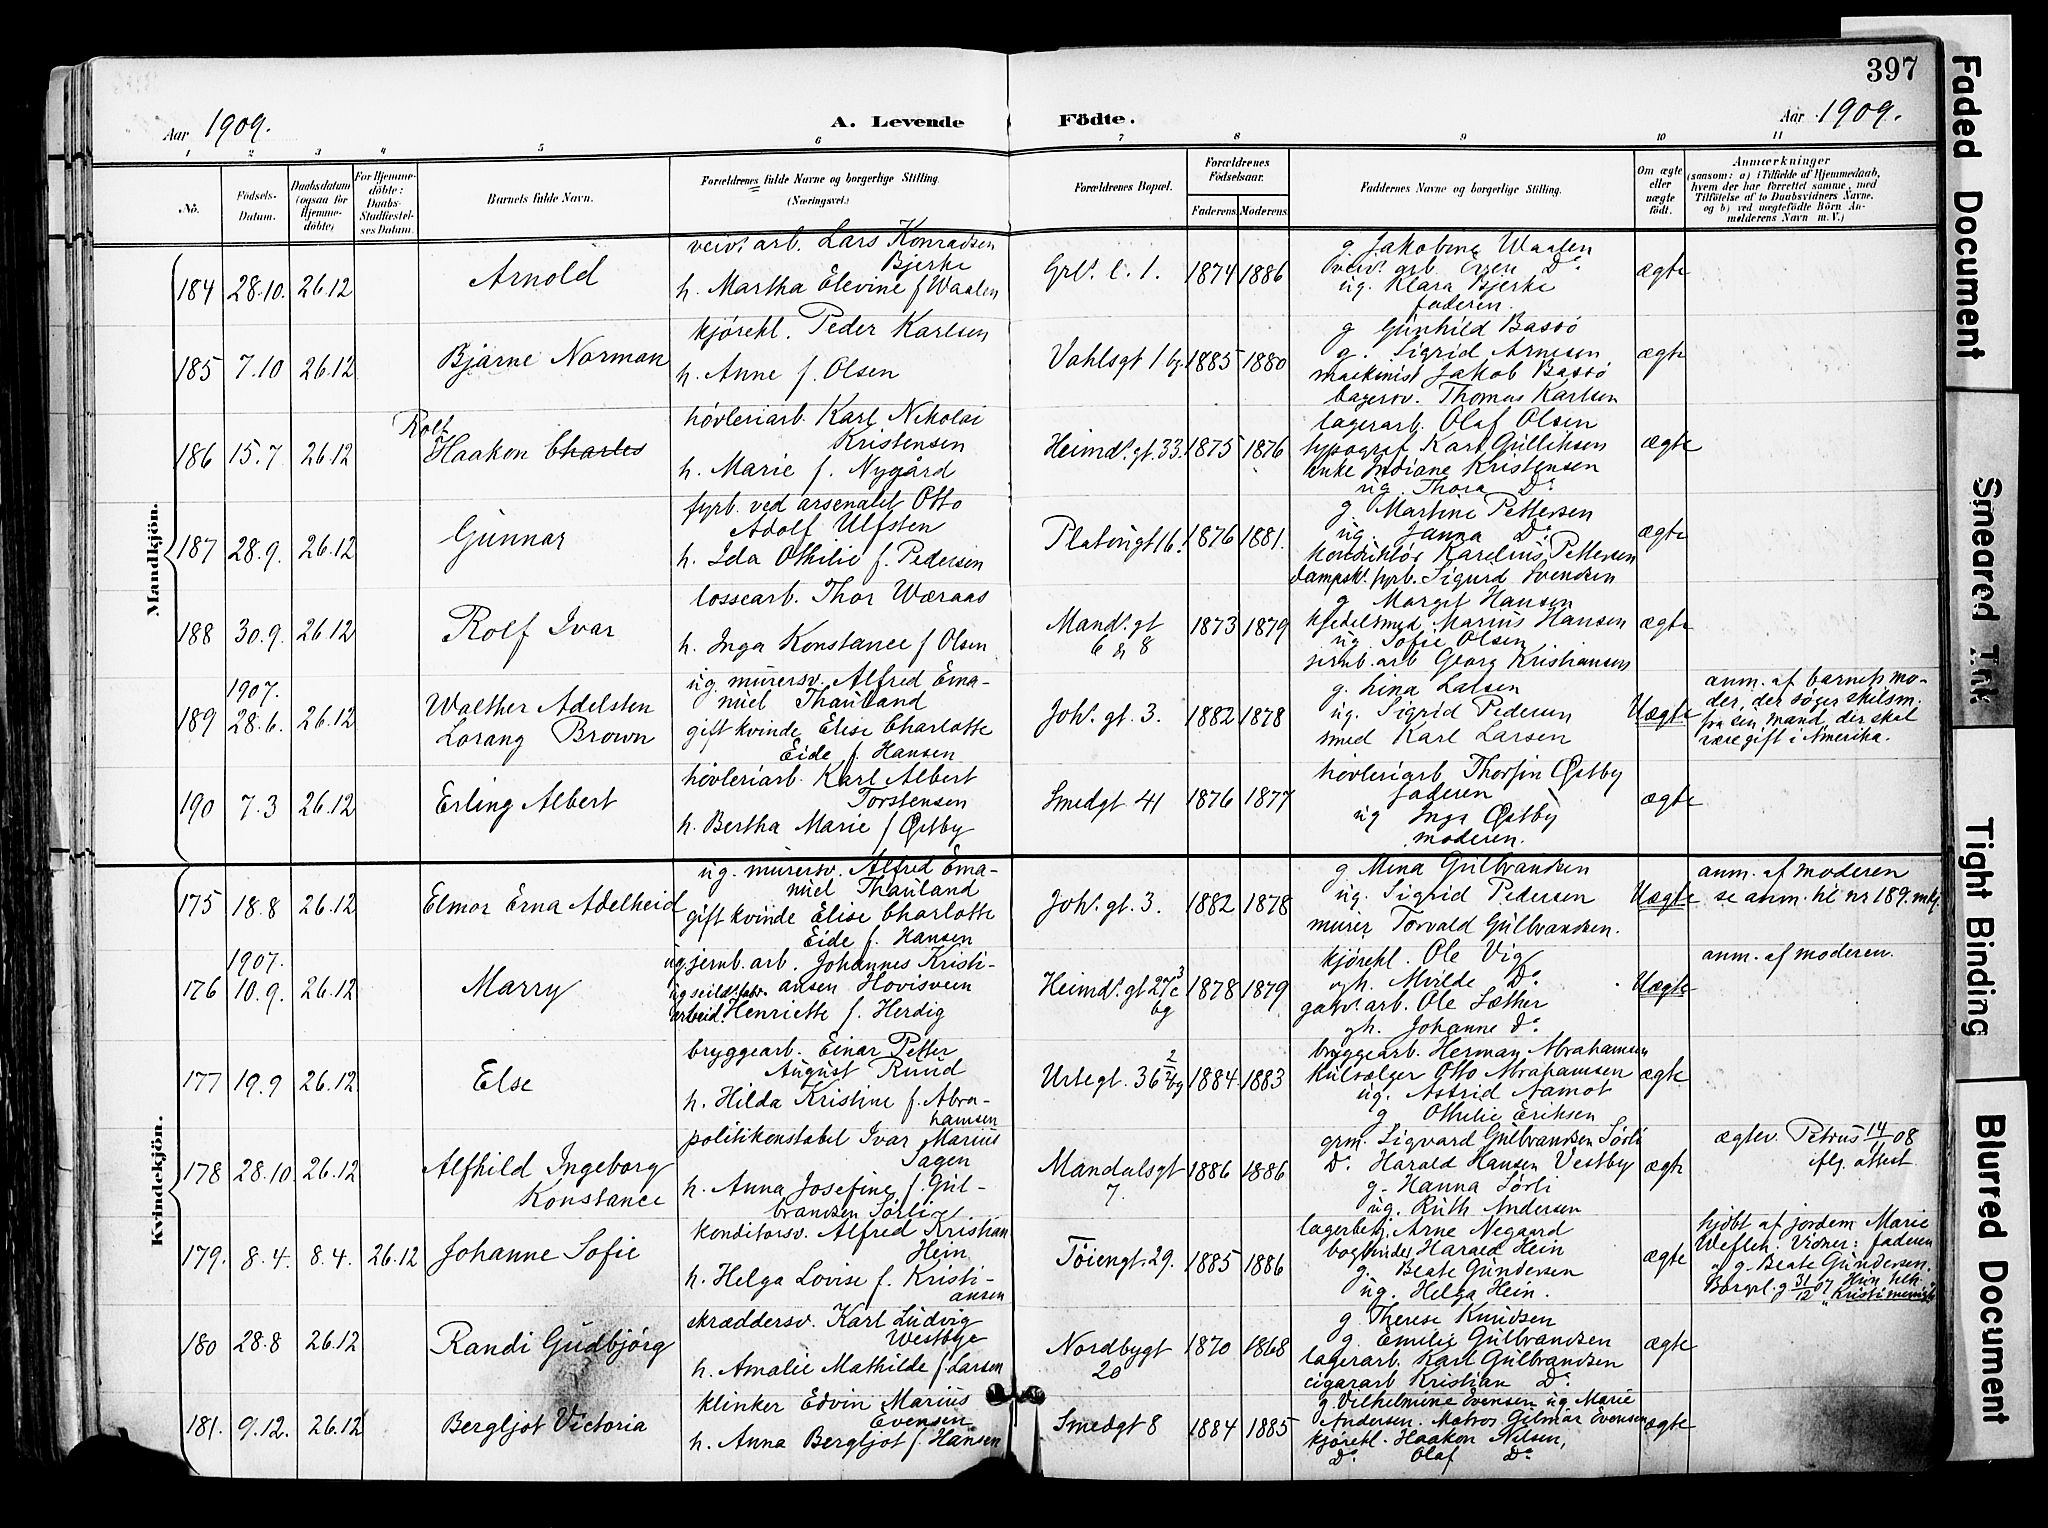 397
Aar 1909.
A. Levende Födte.
Aar 1909.
1 2 3 4 5 6 7 8 9 10 11
No.
Födsels-Datum.
Daabsdatum (ogsaa for Hjemmedöbte)
For Hjemmedöbte: Daabs-Stadfæstelses Datum.
Barnets fulde Navn.
Forældrenes fulde Navne og borgerlige Stilling.
(Næringsvei.)
Forældrenes Bopæl.
Forældrenes Födselsaar.
Faderens. Moderens.
Faddernes Navne og borgerlige Stilling.
Om ægte eller uægte födt.
Anmærkninger
(saasom: a) i Tilfælde af Hjemmedaab, hvem der har forrettet samme, med Tilföielse af to Daabsvidners Navne, og b) ved uægtefödte Börn Anmelderens Navn m. V.)
Mandkjön.
184 28.10. 26.12 Arnold
veiv. arb. Lars Konradsen
Bjerke
h. Martha Elevine f Waalen
Grl. l. 1. 1874 1886
g. Jakobine Waalen
ug. Klara Bjerke
faderen.
ægte
185 7.10 26.12 Bjarne Norman
kjørekl. Peder Karlsen
h. Anne f. Olsen
Vahlsgt 1 bg. 1885 1880
g Gunhild Bassö
g. Sigrid Arnesen
maskinist Jakob Bassö
bagersv. Thomas Karlsen
ægte
186 15.7 26.12
Rolf
Haakon Charles
høvleriarb. Karl Nikolai
Kristensen
h. Marie f. Nygård
Heimd. gt. 33. 1875 1876
lagerarb. Olaf Olsen
typograf Karl Gulliksen
enke Indiane Kristensen
ug. Thora Do
ægte
187 28.9. 26.12 Gunnar
fyrb. ved arsenalet Otto
Adolf Ulfsten
h. Ida Othilie f. Pedersen
Platougt 16. 1876 1881.
g. Martine Pettersen
ug. Janna Do
konduktör Karelius Pettersen
dampsk. fyrb. Sigurd Svendsen
ægte
188 30.9. 26.12 Rolf Ivar
lossearb. Thor Wæraas
h. Inga Konstance f Olsen
Mand. gt
6 & 8
1873 1879
g Margit Hansen
kjedelsmed Marius Hansen
ug. Sofie Olsen
jernb. arb Georg Kristiansen
ægte
1907.
189 28.6. 26.12 Walther Adelsten
Lorang Brown
ug. murersv. Alfred Ema-
nuel Thauland
gift kvinde Elise Charlotte
Eide f. Hansen
Joh. gt. 3. 1882 1878
g. Lina Larsen
ug. Sigrid Pedersen
smed Karl Larsen
Uægte
anm. af barnets mo-
der, der søger skilsm.
fra sen mand, der skal
være gift i Amerika.
190 7.3 26.12 Erling Albert
høvleriarb. Karl Albert
Torstensen
h. Bertha Marie f Østby
Smedgt 41 1876 1877
høvleriarb. Thorfin Østby
faderen
ug Inga Østby
moderen.
ægte
Kvindekjön.
175 18.8 26.12 Elmor Erna Adelheid
ug. murersv. Alfred Ema-
nuel Thauland
gift kvinde Elise Charlotte
Eide f. Hansen
Joh. gt. 3. 1882 1878
g Mina Gulbrandsen
ug. Sigrid Pedersen
murer Torvald Gulbrandsen.
Uægte
anm. af moderen
se anm. til nr 189. mkj.
1907.
176 10.9. 26.12 Marry
ug. jernb. arb. Johannes Kristi-
ansen Hovisvein
arbeid. Henriette f. Herdig
Heimd. gt 27c 3
bg
1878 1879
kjørekl. Ole Vig
gh. Mvilde Do
gasv. arb. Ole Sæther
gh. Johanne Do
Uægte
anm. af moderen.
177 19.9 26.12 Else
bryggearb. Einar Petter
August Ruud
h. Hilda Kristine f. Abra-
hamsen
Urtegt. 36 2/2 bg 1884 1883
bryggearb. Herman Abrahamsen
kulsælger Otto Abrahamsen
ug. Astrid Aamot
g Othilie Eriksen
ægte
178 28.10. 26.12 Alfhild Ingeborg
Konstance
politikonstabel Ivar Marius
Sagen
h. Anna Josefine f. Gul-
brandsen Sørli
Mandalsgt
7.
1886 1886
grm. Sigvard Gulbrandsen Sørli
Do Harald Hansen Vestby
g. Hanna Sørli
ug. Ruth Andersen
ægte
ægtev. Petrus 14/11 08
iflg. attest
179. 8.4. 8.4. 26.12 Johanne Sofie
konditorsv. Alfred Kristian
Hein
h. Helga Lovise f. Kristi-
ansen
Töiengt. 29. 1885 1886
lagerbetj. Arne Negaard
bogbinder Harald Hein
g. Beate Gundersen
ug. Helga Hein.
ægte
hjdbt af jordem. Marie
Weflen. Vidner: faderen
g. Beate Gundersen.
Borgl. g 31/12 07 Hun tilh.
"Kristi menigh"
180 28.8 26.12 Randi Gudbjörg
skræddersv. Karl Ludvig
Westbye
h. Amalie Mathilde f Larsen
Nordbygt
20
1870 1868
g Therese Knudsen
g. Emilie Gulbrandsen
lagerarb. Karl Gulbrandsen
cigararb Kristian Do
ægte
181. 9.12. 26.12 Bergljot Victoria
klinker Edvin Marius
Evensen
h. Anna Bergljot f. Hansen
Smedgt 8 1884 1885
g. Vilhelmine Evensen ug Marie
Andersen. Matros Gilmar Evensen
kjørekl. Haakon Nilsen,
Do Olaf Do
ægte
Faded Document
Smeared Ink
Tight Binding
Blurred Document